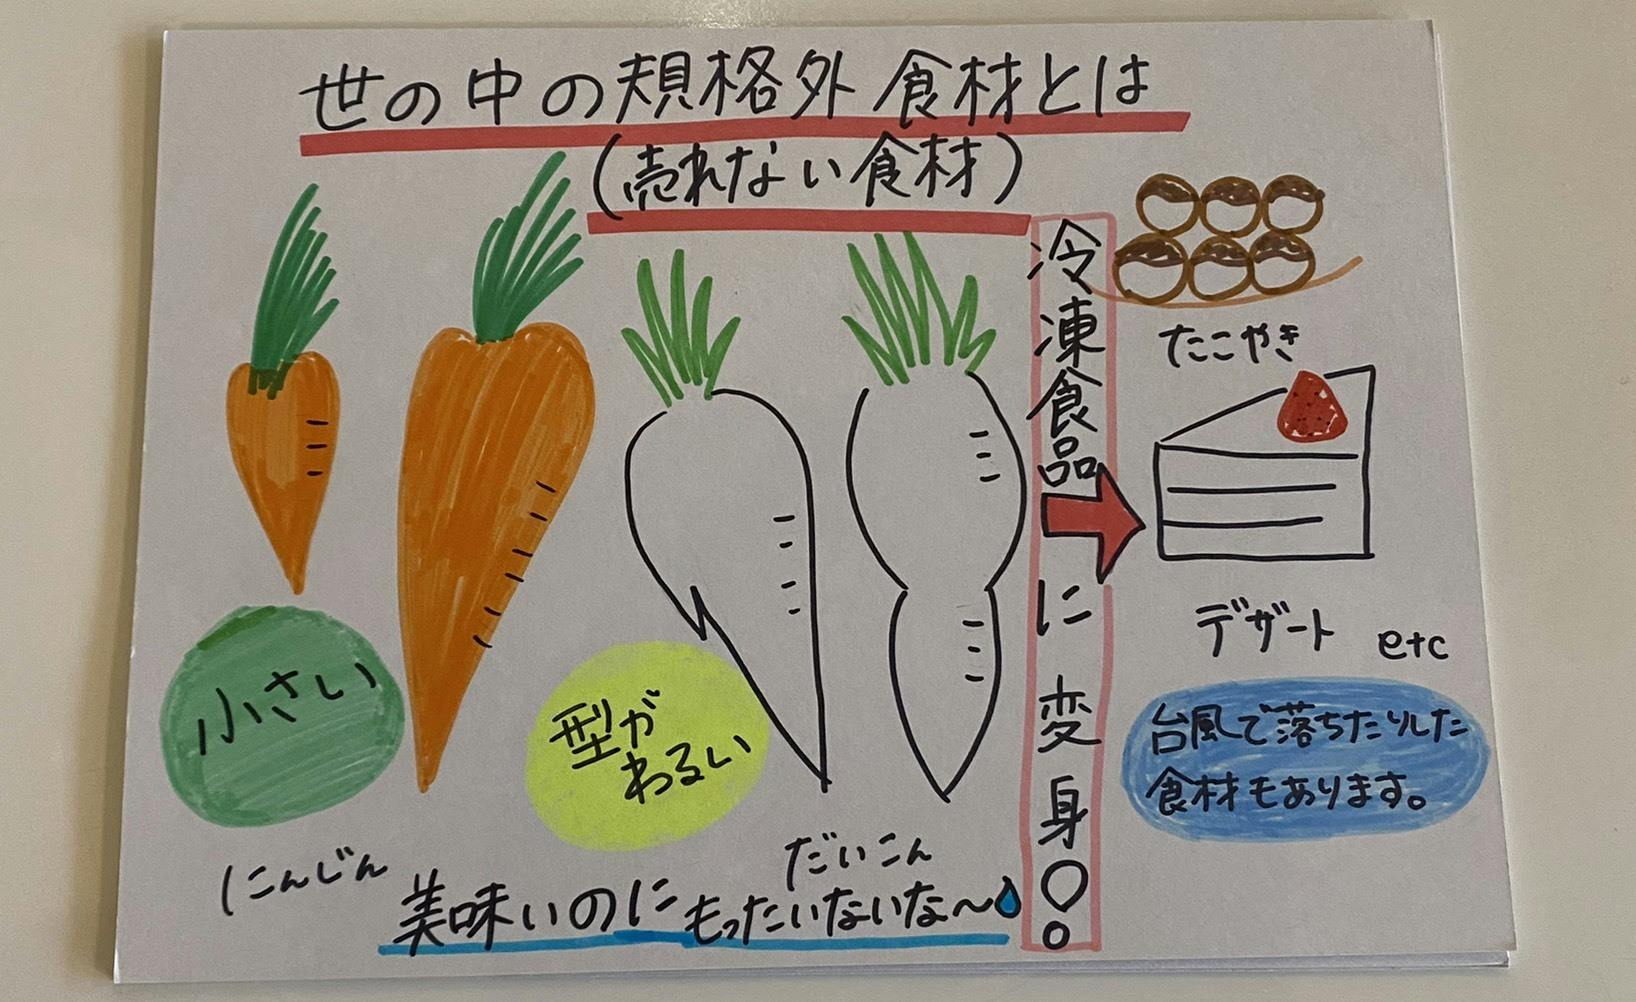 世の中の規格外食材とは
(売れない食材)
小さい
にんじん
型が
わるい
だいこん
美味いのにもったいないな〜
冷凍食品に変身!
たこやき
デザート
etc
台風で落ちたりした
食材もあります。